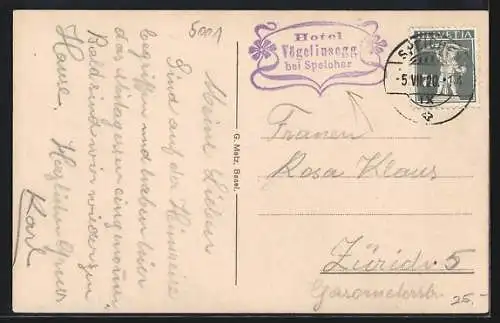 5001
Meine Lieben
Sind auf der Heimreise
begriffen und haben hier
das Mittagessen eingenommen.
Bald sind wir wieder zu
Hause. Herzlichen Gruss
Karl
G. Metz, Basel.
Hotel
Vögelinsegg
bei Speicher
HELVETIA
Frauen
Rosa Klaus
Zürich 5
Gasometerstr.
25.-